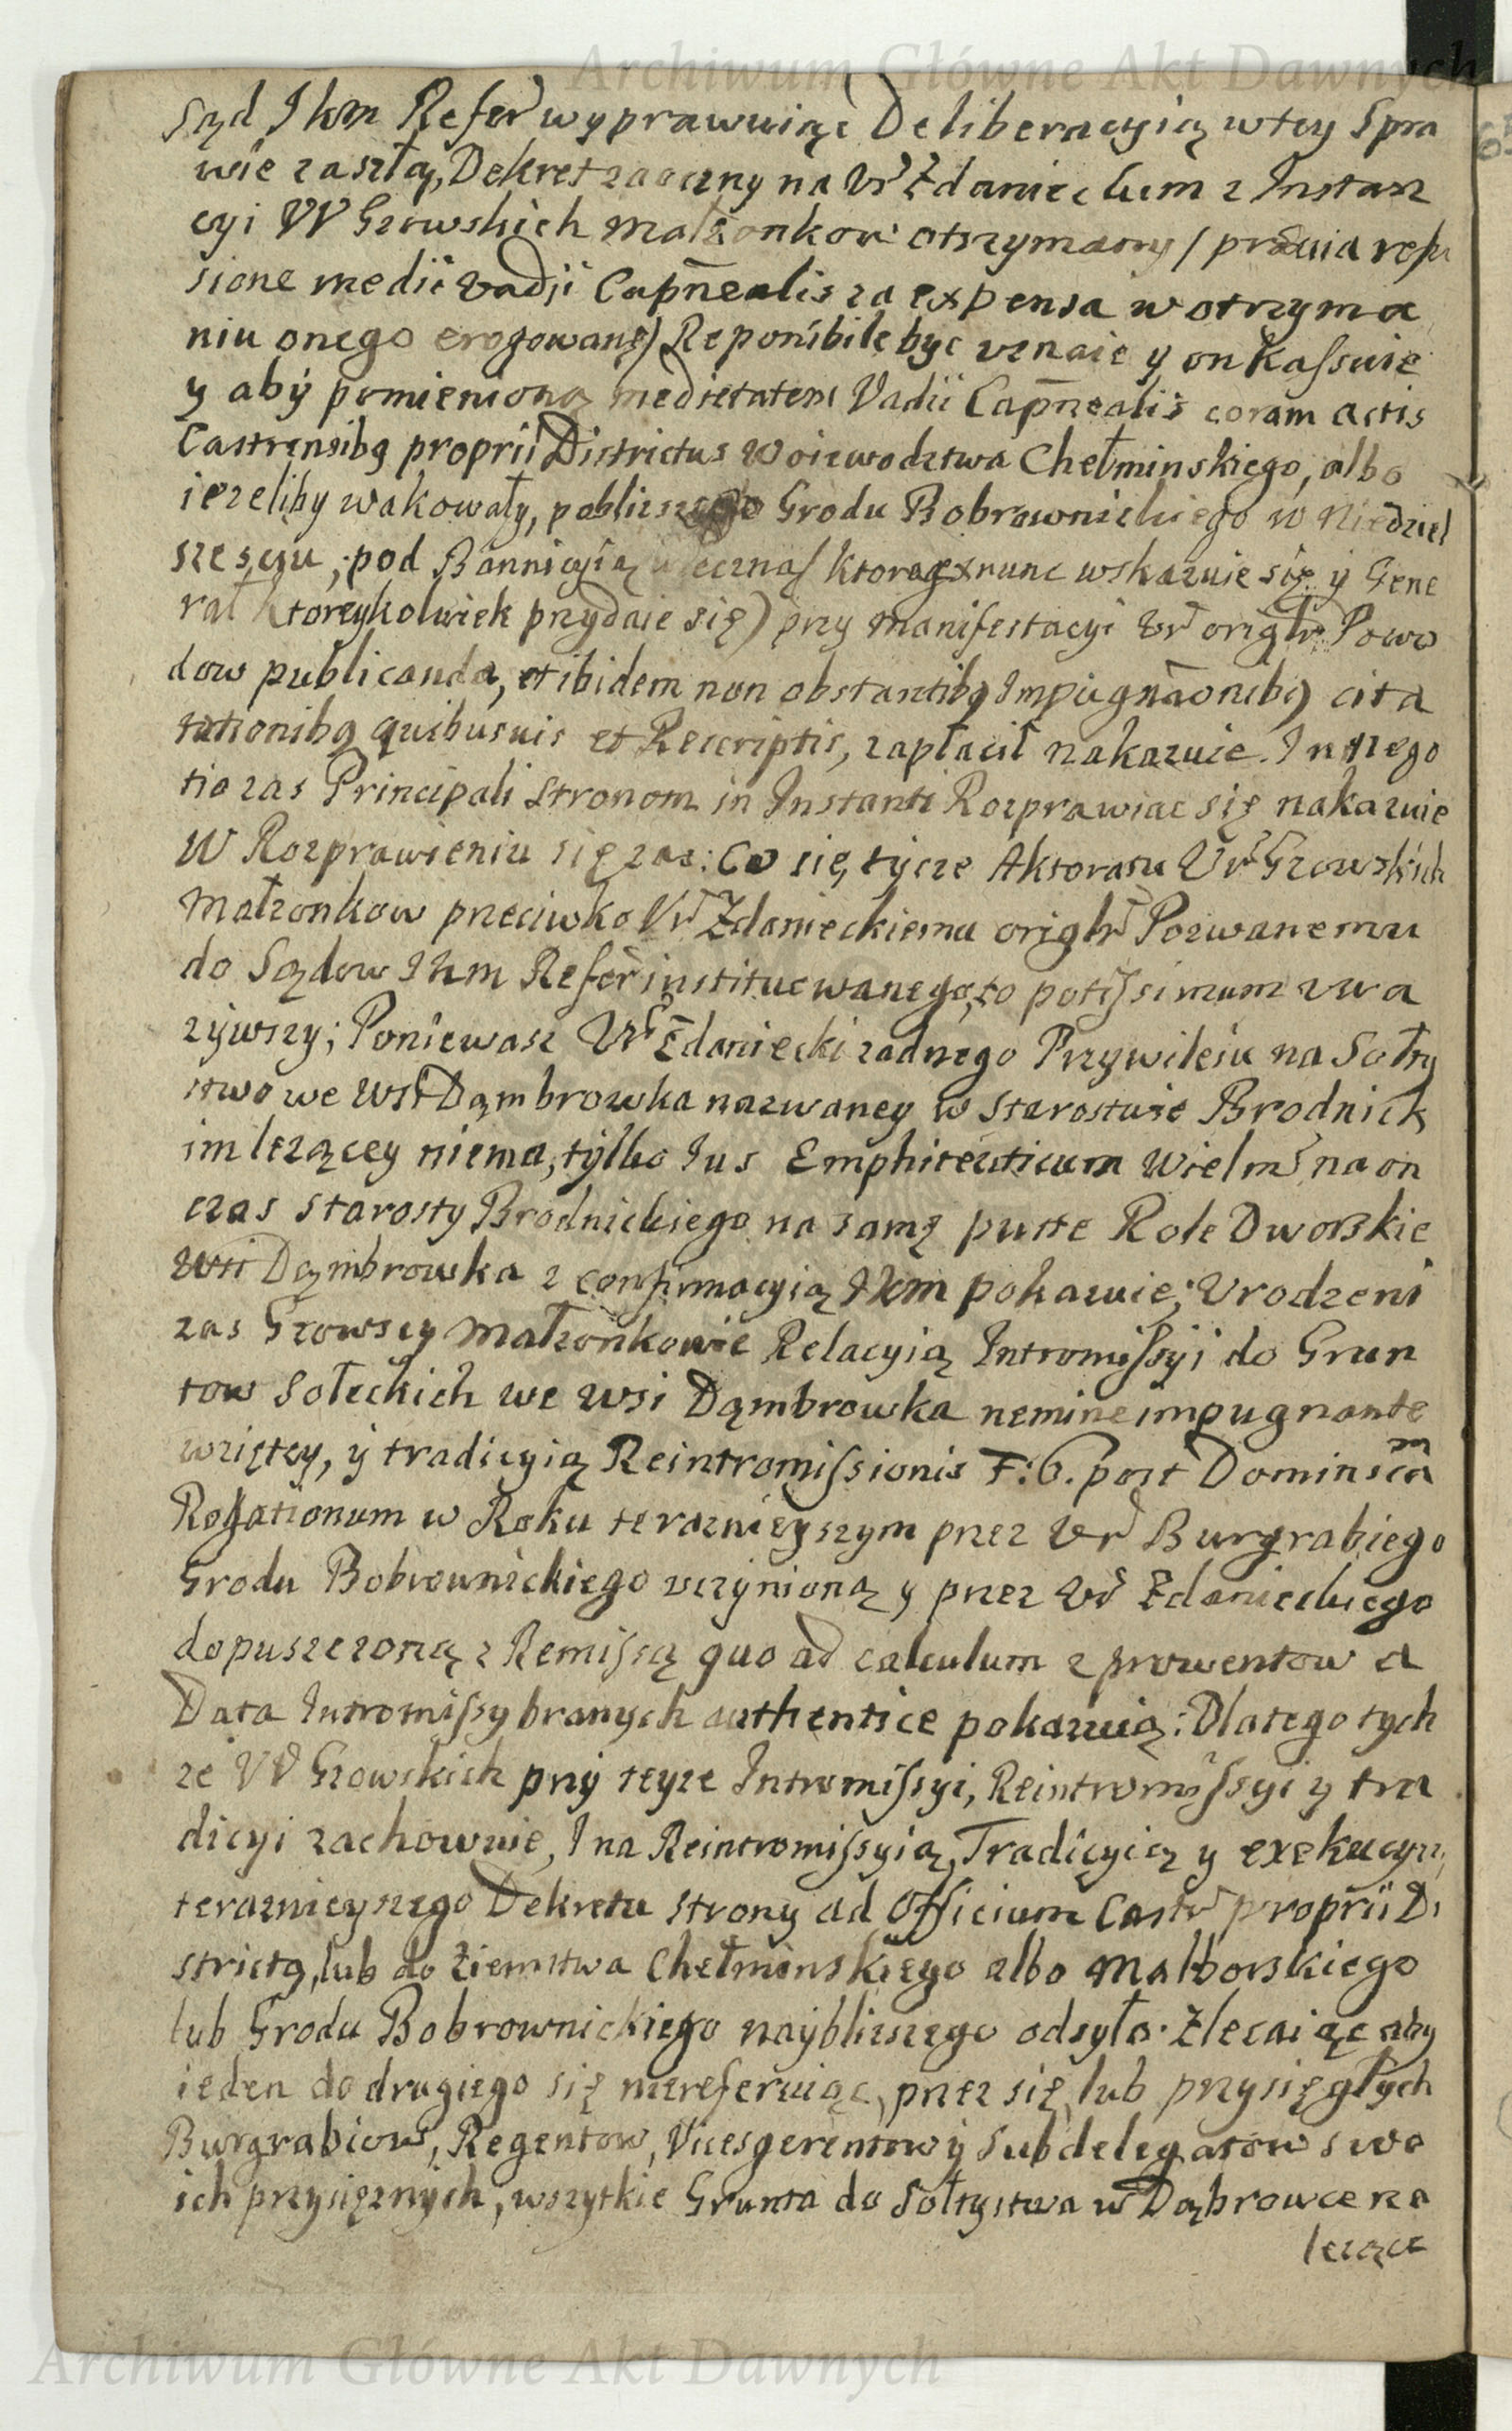 Archiwum Główne Akt Dawnych
Sąd Jkm Refer wyprawuiąc Deliberacyią w tey Spra
wie zaszłą, Dekret zaoczny na Ur Zdanieckim z Instan
cyi UU Gzowskich Małzonkow otrzymany / praevia refu
sione medii vadii Capnealis za expensa w otrzyma
niu onego erogowane) Reponibile byc uznaie y on kassuie
y aby pomienioną medietatem Vadii Capnealis coram actis
Castrensibq proprii Districtus Woiewodztwa Chełminskiego, albo
iezeliby wakowały, pobliszego Grodu Bobrownickiego w Niedziel
szesciu, pod Bannicyią wieczną / ktora ex nunc wskazuie się y Gene
rał ktoreykolwiek przydaie się) przy manifestacyi Ur orighr Powo
dow publicanda, et ibidem non obstantibq Impugnaonibq cita
tationibq quibusuis et Rescriptis, zapłacił nakazuie. In nego
tio zas Principali Stronom in Instanti Rozprawiac się nakazuie
W Rozprawieniu się zas: Co się tycze Aktoratu Ur Gzowskich
Małzonkow przeciwko Ur Zdanieckiemu orighr Pozwanemu
do Sądow Jkm Refer instituowanego, to potissimum uwa
zywszy; Poniewasz Ur Zdaniecki zadnego Przywileiu na Sołty
stwo we Wsi Dąmbrowka nazwaney w Starostwie Brodnick
im lezącey niema, tylko Jus Emphiteuticum Wielm na on
czas Starosty Brodnickiego na samę puste Role Dworskie
Wsi Dąmbrowka z confirmacyią Jkm pokazuie; Urodzeni
zas Gzowscy Małzonkowie Relacyią Intromissyi do Grun
tow Sołeckich we Wsi Dąmbrowka nemine impugnante
wziętey, y tradicyią Reintromissionis F: 6. post Dominicam
Rogationum w Roku terazniey szym przez Ur Burgrabiego
Grodu Bobrownickiego uczynioną y przez Ur Zdanieckiego
dopuszczoną z Remissą quo ad calculum z prowentow a
Data Intromissy branych authentice pokazuią: Dlatego tych
ze UU Gzowskich przy teyze Intromissyi, Reintromissyi y tra
dicyi zachowuie, I na Reintromissyią, Tradicyią y exekucyą
terazniey szego Dekretu Strony ad Officium Castr proprii Di
strictq, lub do Ziemstwa Chełminskiego albo Malborskiego
lub Grodu Bobrownickiego naybliszego odsyła. Zlecaiąc aby
ieden do drugiego się niereferuiąc, przez się lub przysięgłych
Burgrabiow, Regentow, Vicesgerentow y Subdelegatow swo
ich przysięznych, wszytkie Grunta do Sołtystwa w Dąbrowce na
lezące
Archiwum Główne Akt Dawnych